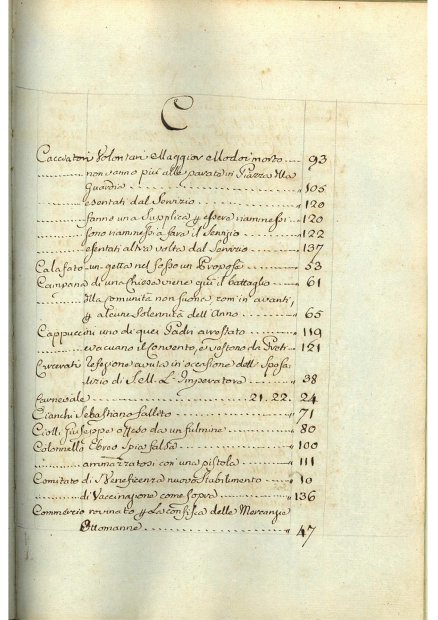 C
Cacciatori Volontari Maggior Modoi morto ..... 93
non vanno più alla parata in Piazza Illa
Guardia ..... 105
esentati dal Servizio ..... 120
fanno una Supplica p essere riammessi .. 120
sono riammessi a fare il Servizio ..... 122
esentati altra volta dal Servizio ..... 137
Calafato un getta nel fosso un ..... 53
Campana di una Chiesa viene giù il battaglio .. 61
Illa Comunità non suona, com' in avanti,
p alcune Solennità dell'Anno ..... 65
Cappuccini uno di quei Padri arrestato ..... 119
evacuano il Convento, e si vestono da Preti .. 121
Carcerati Refezione avuta in occasione dell' Sposa-
lizio di S. M. L'Imperatore ..... 38
Carnevale ..... 21. 22. 24
Cianchi Sebastiano fallito ..... 71
Ciotti Giuseppe offeso da un fulmine ..... 80
Colonnello Ebreo Spia falsa ..... 100
ammazzatosi con una pistola ..... 111
Comitato di Beneficenza nuovo Stabilimento .. 10
di Vaccinazione come sopra ..... 136
Commercio rovinato p La confisca delle Mercanzie
Ottomanne ..... 47